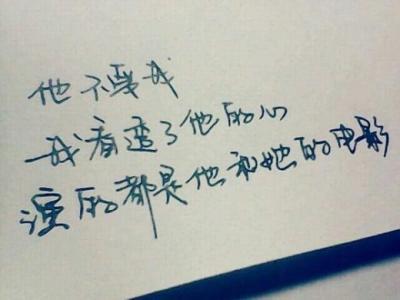 他不爱我
我看透了他的心
演的都是他和她的电影